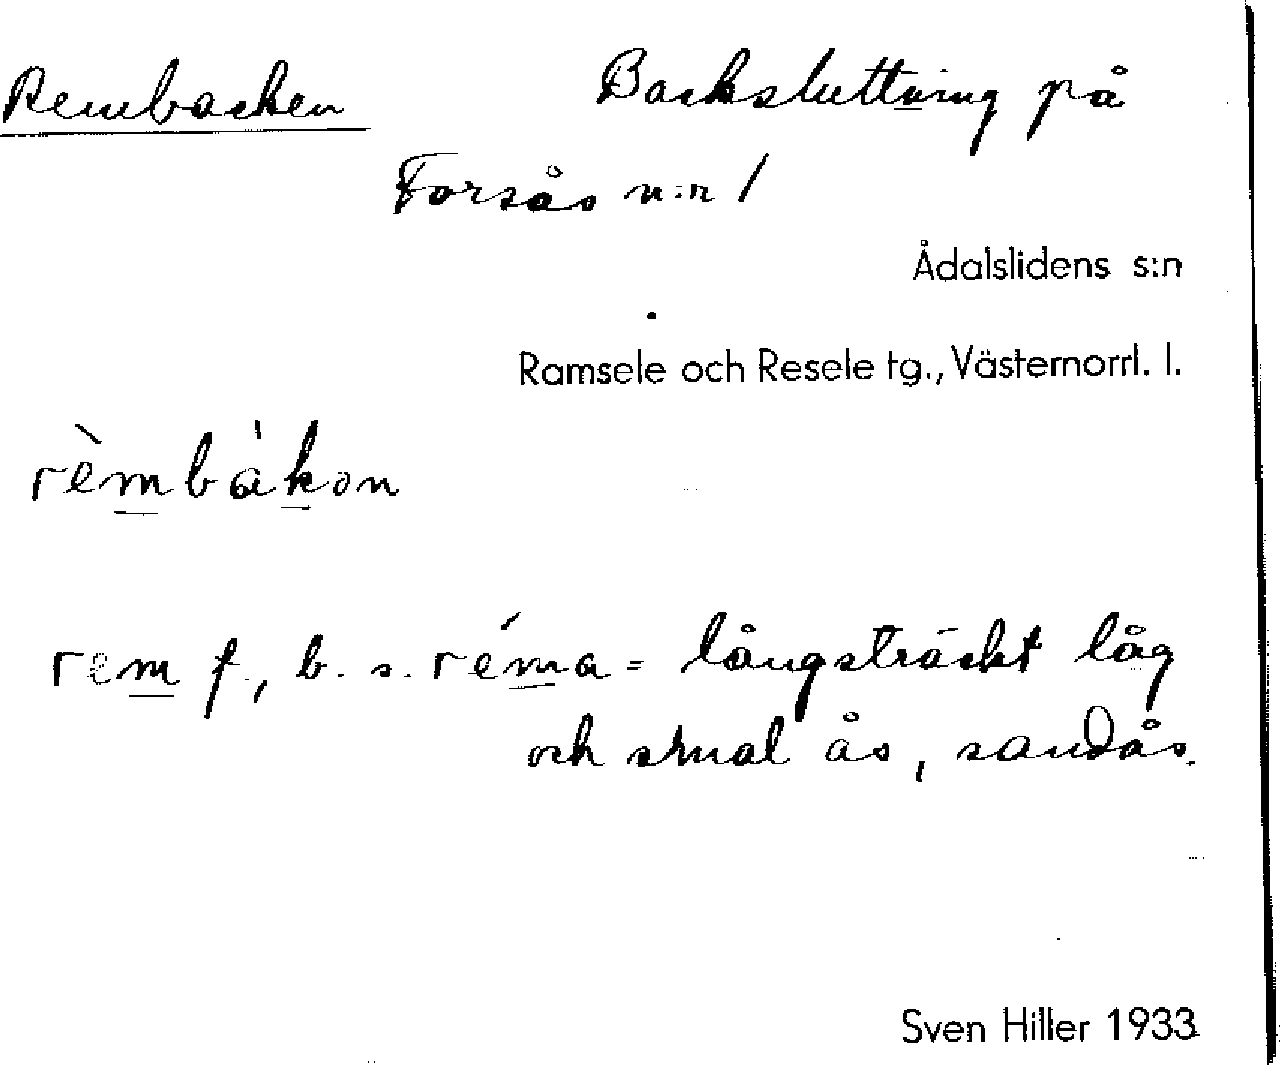 Rembacken Backsluttning på
Forsås n:r 1
Ådalslidens s:n
Ramsele och Resele tg., Västernorrl. l.
rèmbàkon
rem f., b. s. réma = långsträckt låg
och smal ås, sandås.
Sven Hiller 1933